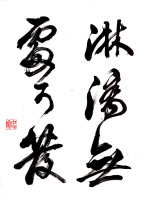 淋漓無
處可發